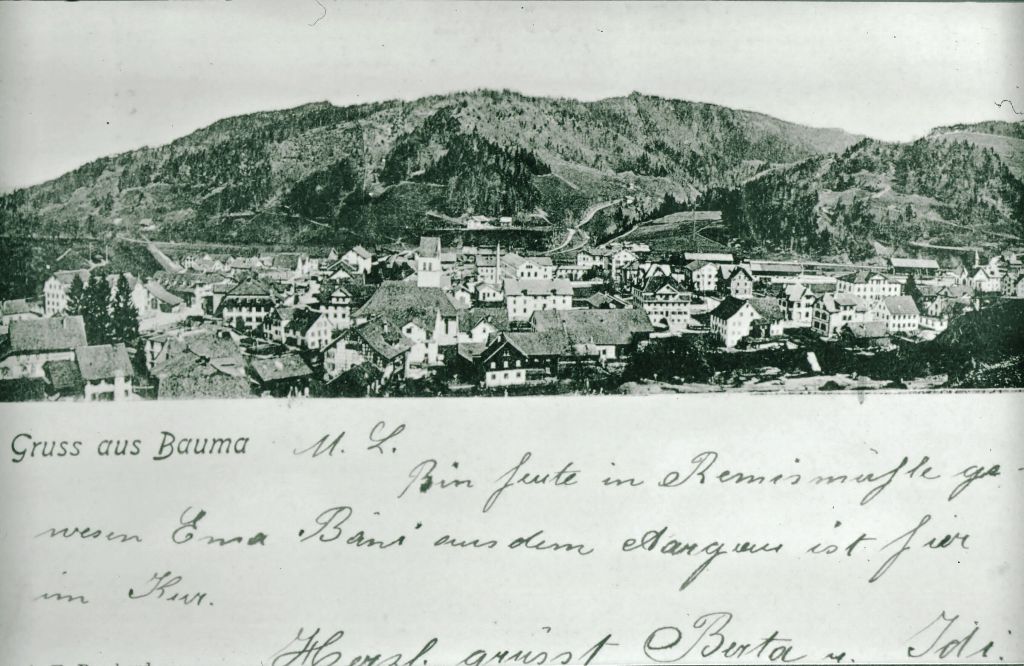 Gruss aus Bauma M. L.
Bin heute in Remismühle ge-
wesen Ema Bäni aus dem Aargau ist hier
im Kur.
Herzl. grüsst Berta u. Idi.